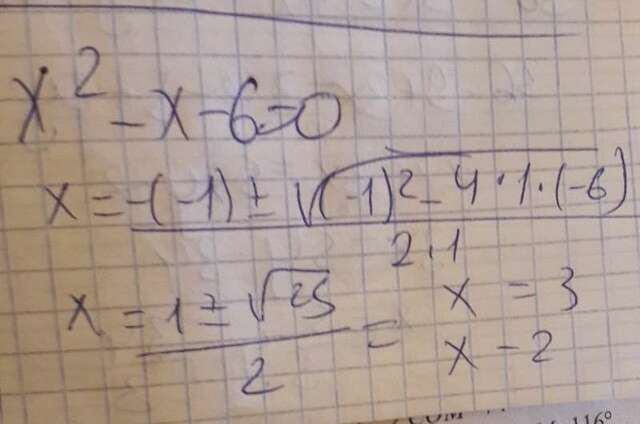 x² - x - 6 = 0
x = -(-1) ± √(-1)² - 4 · 1 · (-6)
2 · 1
x = 1 ± √25 =
2
x = 3
x - 2
116°